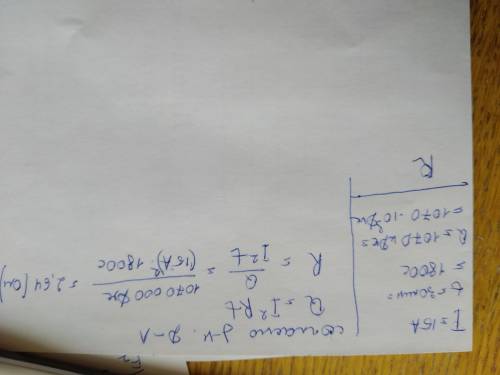 I = 15A
t = 30мин =
= 1800с
Q = 1070 кДж =
= 1070 · 10³ Дж
R
согласно з-н. Д-Л
Q = I² R t
R = Q / I² t = 1070 000 Дж / (15А)² · 1800с = 2,64 (Ом)